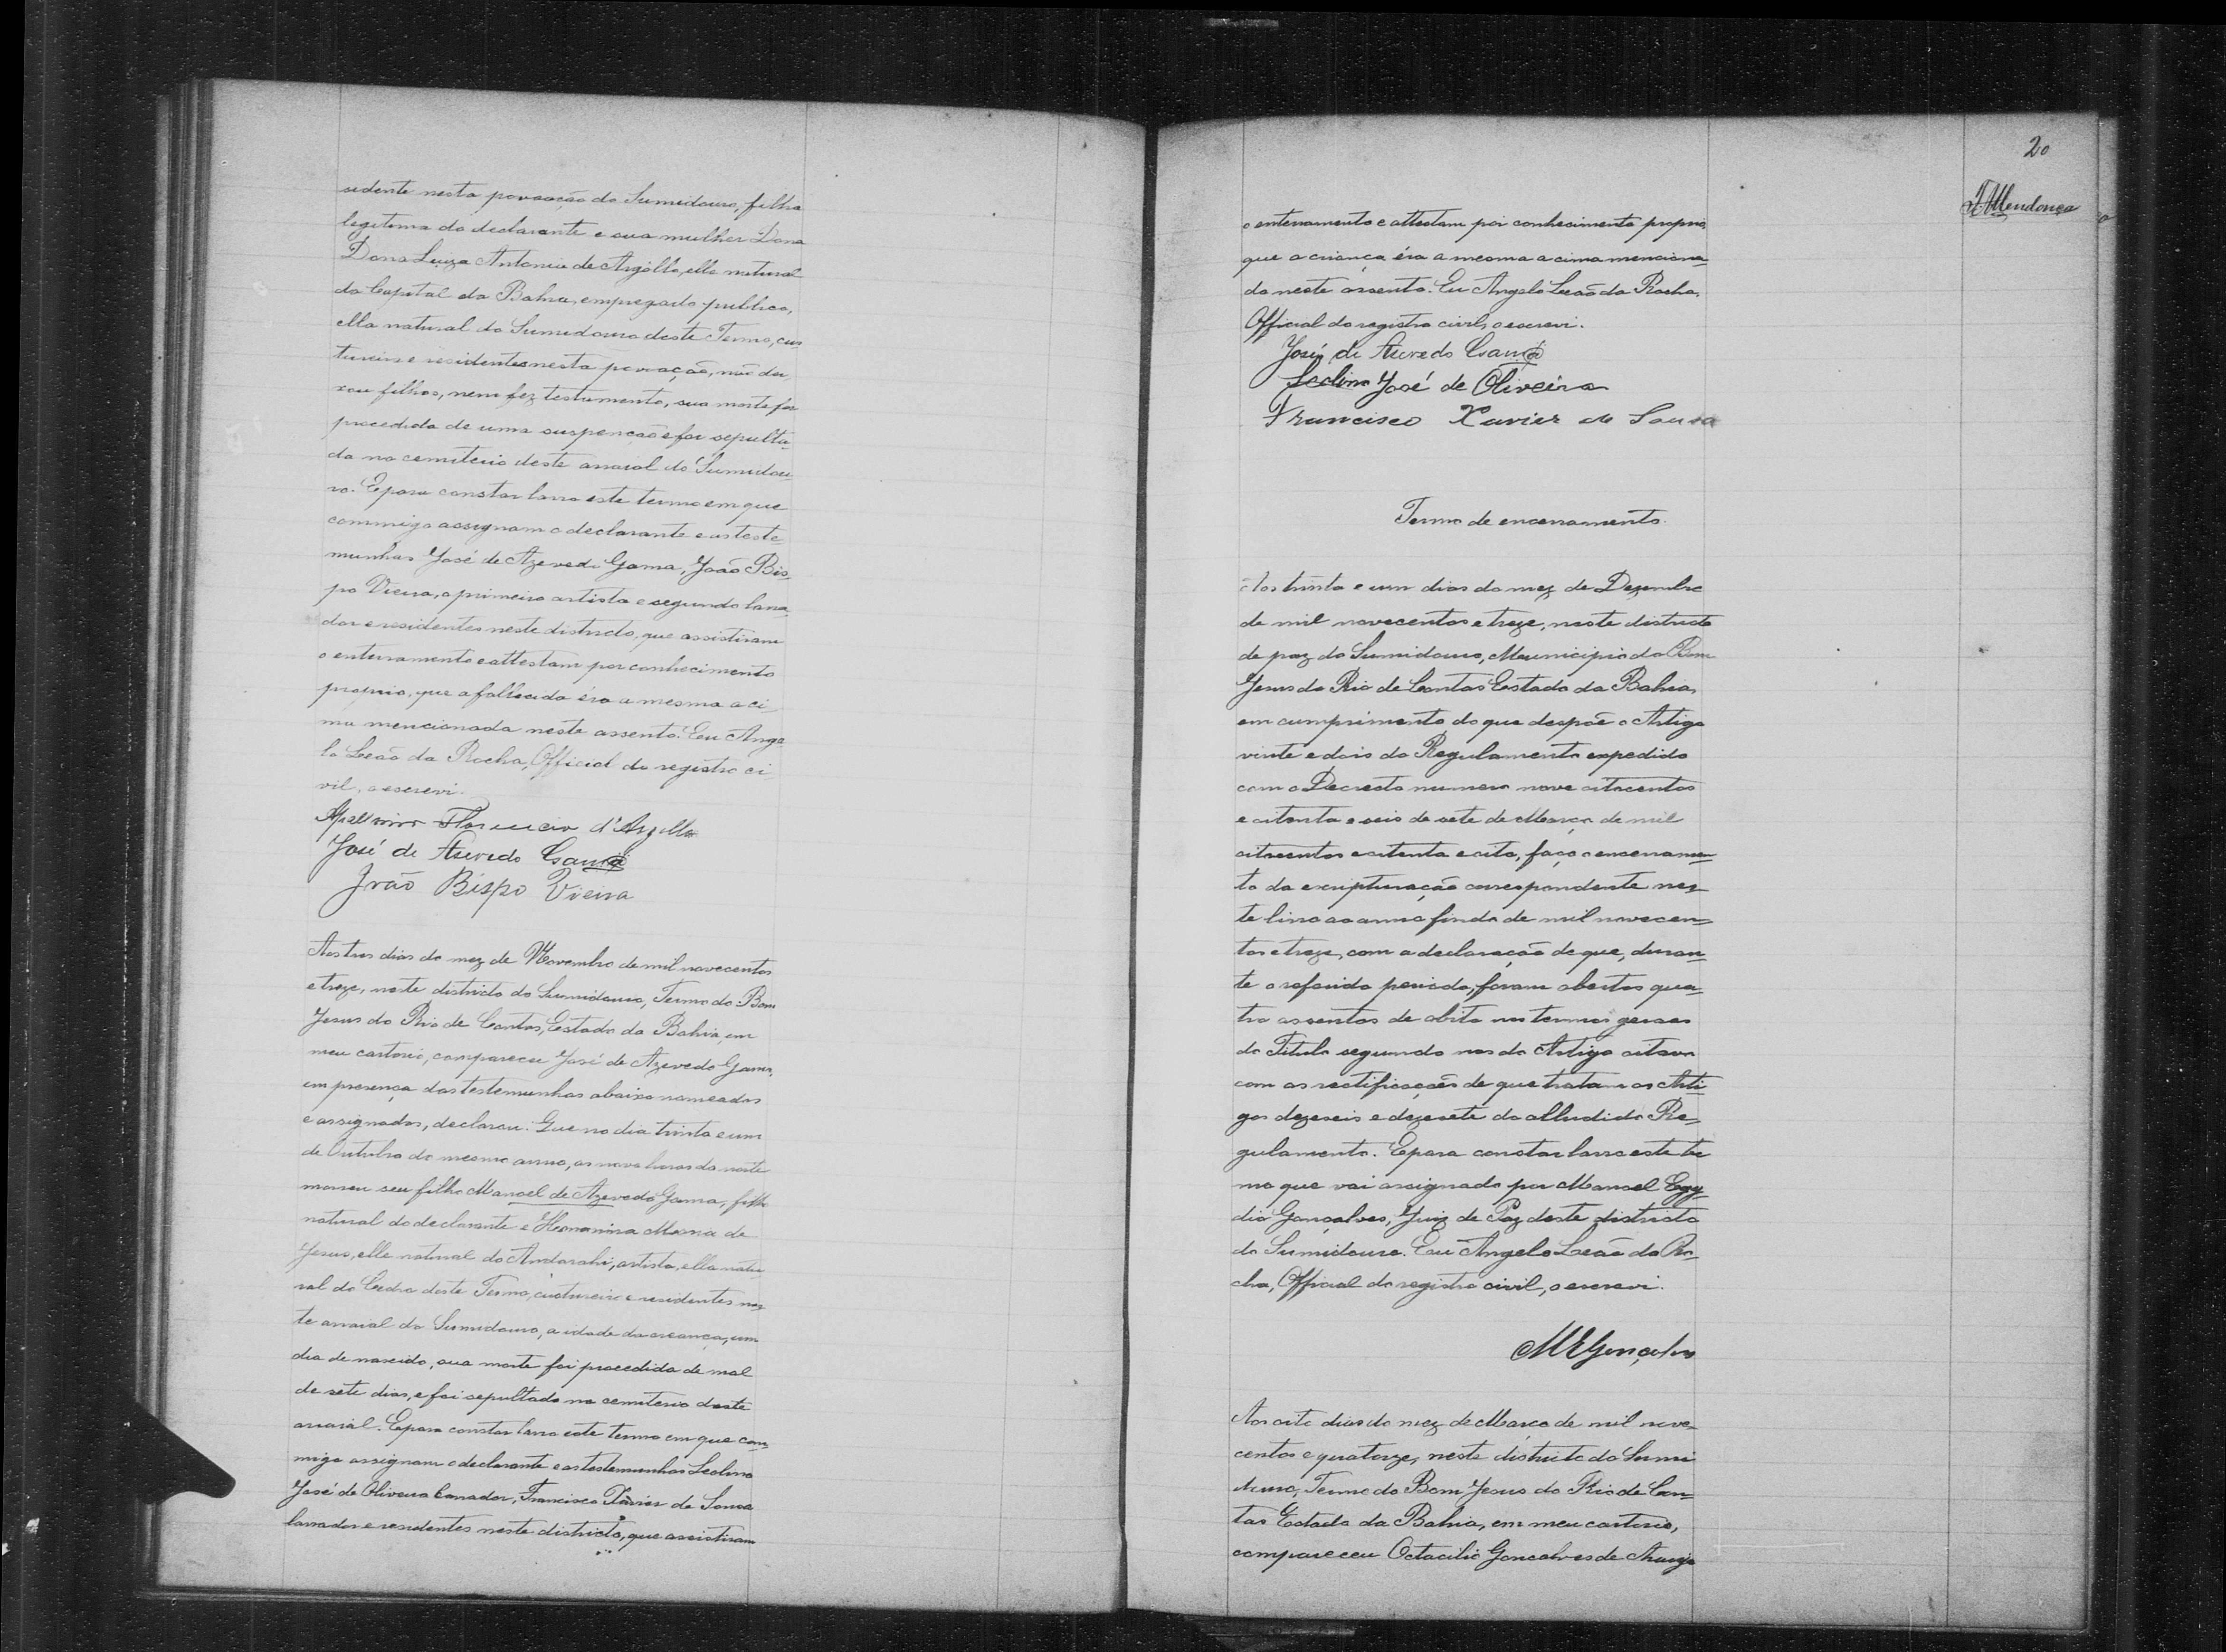 sidente nesta povoação do Sumidouro, filha
legitima do declarante e sua mulher Dona
Dona Luiza Antonia de Argôllo, elle natural
da Capital da Bahia, empregado publico,
ella natural do Sumidouro deste Termo, cos
tureira e residentes nesta povoação, não dei
xou filhos, nem fez testamento, sua morte foi
procedida de uma suspenção e foi sepulta-
da no cemiterio deste arraial do Sumidou
ro. E para constar lavro este termo em que
commigo assignam o declarante e as teste
munhas José de Azevedo Gama, João Bis
po Vieira, o primeiro artista e segundo lavra
dor e residentes neste districto, que assistiram
o enterramento e attestam por conhecimento
proprio, que a fallecida éra a mesma aci
ma mencionada neste assento. Eu Ange
lo Leão da Rocha, Official do registro ci
vil, o escrevi.
Florencio d'Argollo
José de Asevedo Gama
João Bispo Vieira
Aos tres dias do mez de Novembro de mil novecentos
e treze, neste districto do Sumidouro, Termo do Bom
Jesus do Rio de Contas, Estado da Bahia, em
meu cartorio, compareceu José de Azevedo Gama,
em presença das testemunhas abaixo nomeadas
e assignadas, declarou: Que no dia trinta e um
de Outubro do mesmo anno, as nove horas da noite
morreu seu filho Manoel de Azevedo Gama, filho
natural do declarante e Maria de
Jesus, elle natural do Andarahi, artista, ella natu
ral do Cedro deste Termo, custureira e residentes nes
te arraial do Sumidouro, a idade da creança, um
dia de nascido, sua morte foi procedida de mal
de sete dias, e foi sepultado no cemiterio deste
arraial. E para constar lavro este termo em que com
migo assignam o declarante e as testemunhas Leolino
José de Oliveira lavrador, Francisco Xavier de Sousa
lavrador e residentes neste districto, que assistiram
20
Mendonça
o enterramento e attestam por conhecimento proprio,
que a criança éra a mesma acima menciona
da neste assento. Eu Angelo Leão da Rocha,
Official do registro civil, o escrevi.
José de Asevedo Gama
Leolino José de Oliveira
Francisco Xavier de Sousa
Termo de encerramento.
Aos trinta e um dias do mez de Dezembro
de mil novecentos e treze, neste districto
de paz do Sumidouro, Municipio do Bom
Jesus do Rio de Contas Estado da Bahia,
em cumprimento do que despõe o Artigo
vinte e dois do Regulamento expedido
com o Decreto numero nove oitocentos
e oitenta e seis de sete de Março de mil
oitocentos e oitenta e oito, faço o encerramen
to da escripturação correspondente nes-
te livro ao anno findo de mil novecen-
tos e treze, com a declaração de que, duran-
te o referido periodo, foram abertos qua-
tro assentos de obito nos termos geraes
do Titulo segundo nos do Artigo oitavo
com as rectificações de que tratam os Arti
gos dezeseis e dezesete do alludido Re-
gulamento. E para constar lavro este ter
mo que vai assignado por Manoel Egy
dio Gonçalves, Juiz de Paz deste districto
do Sumidouro. Eu Angelo Leão da Ro-
cha, Official do registro civil, o escrevi.
M E Gonçalves
Aos oito dias do mez de Março de mil nove-
centos e quatorze, neste districto do Sumi
douro, Termo do Bom Jesus do Rio de Con-
tas Estado da Bahia, em meu cartorio,
compareceu Octacilio Gonçalves de Araujo